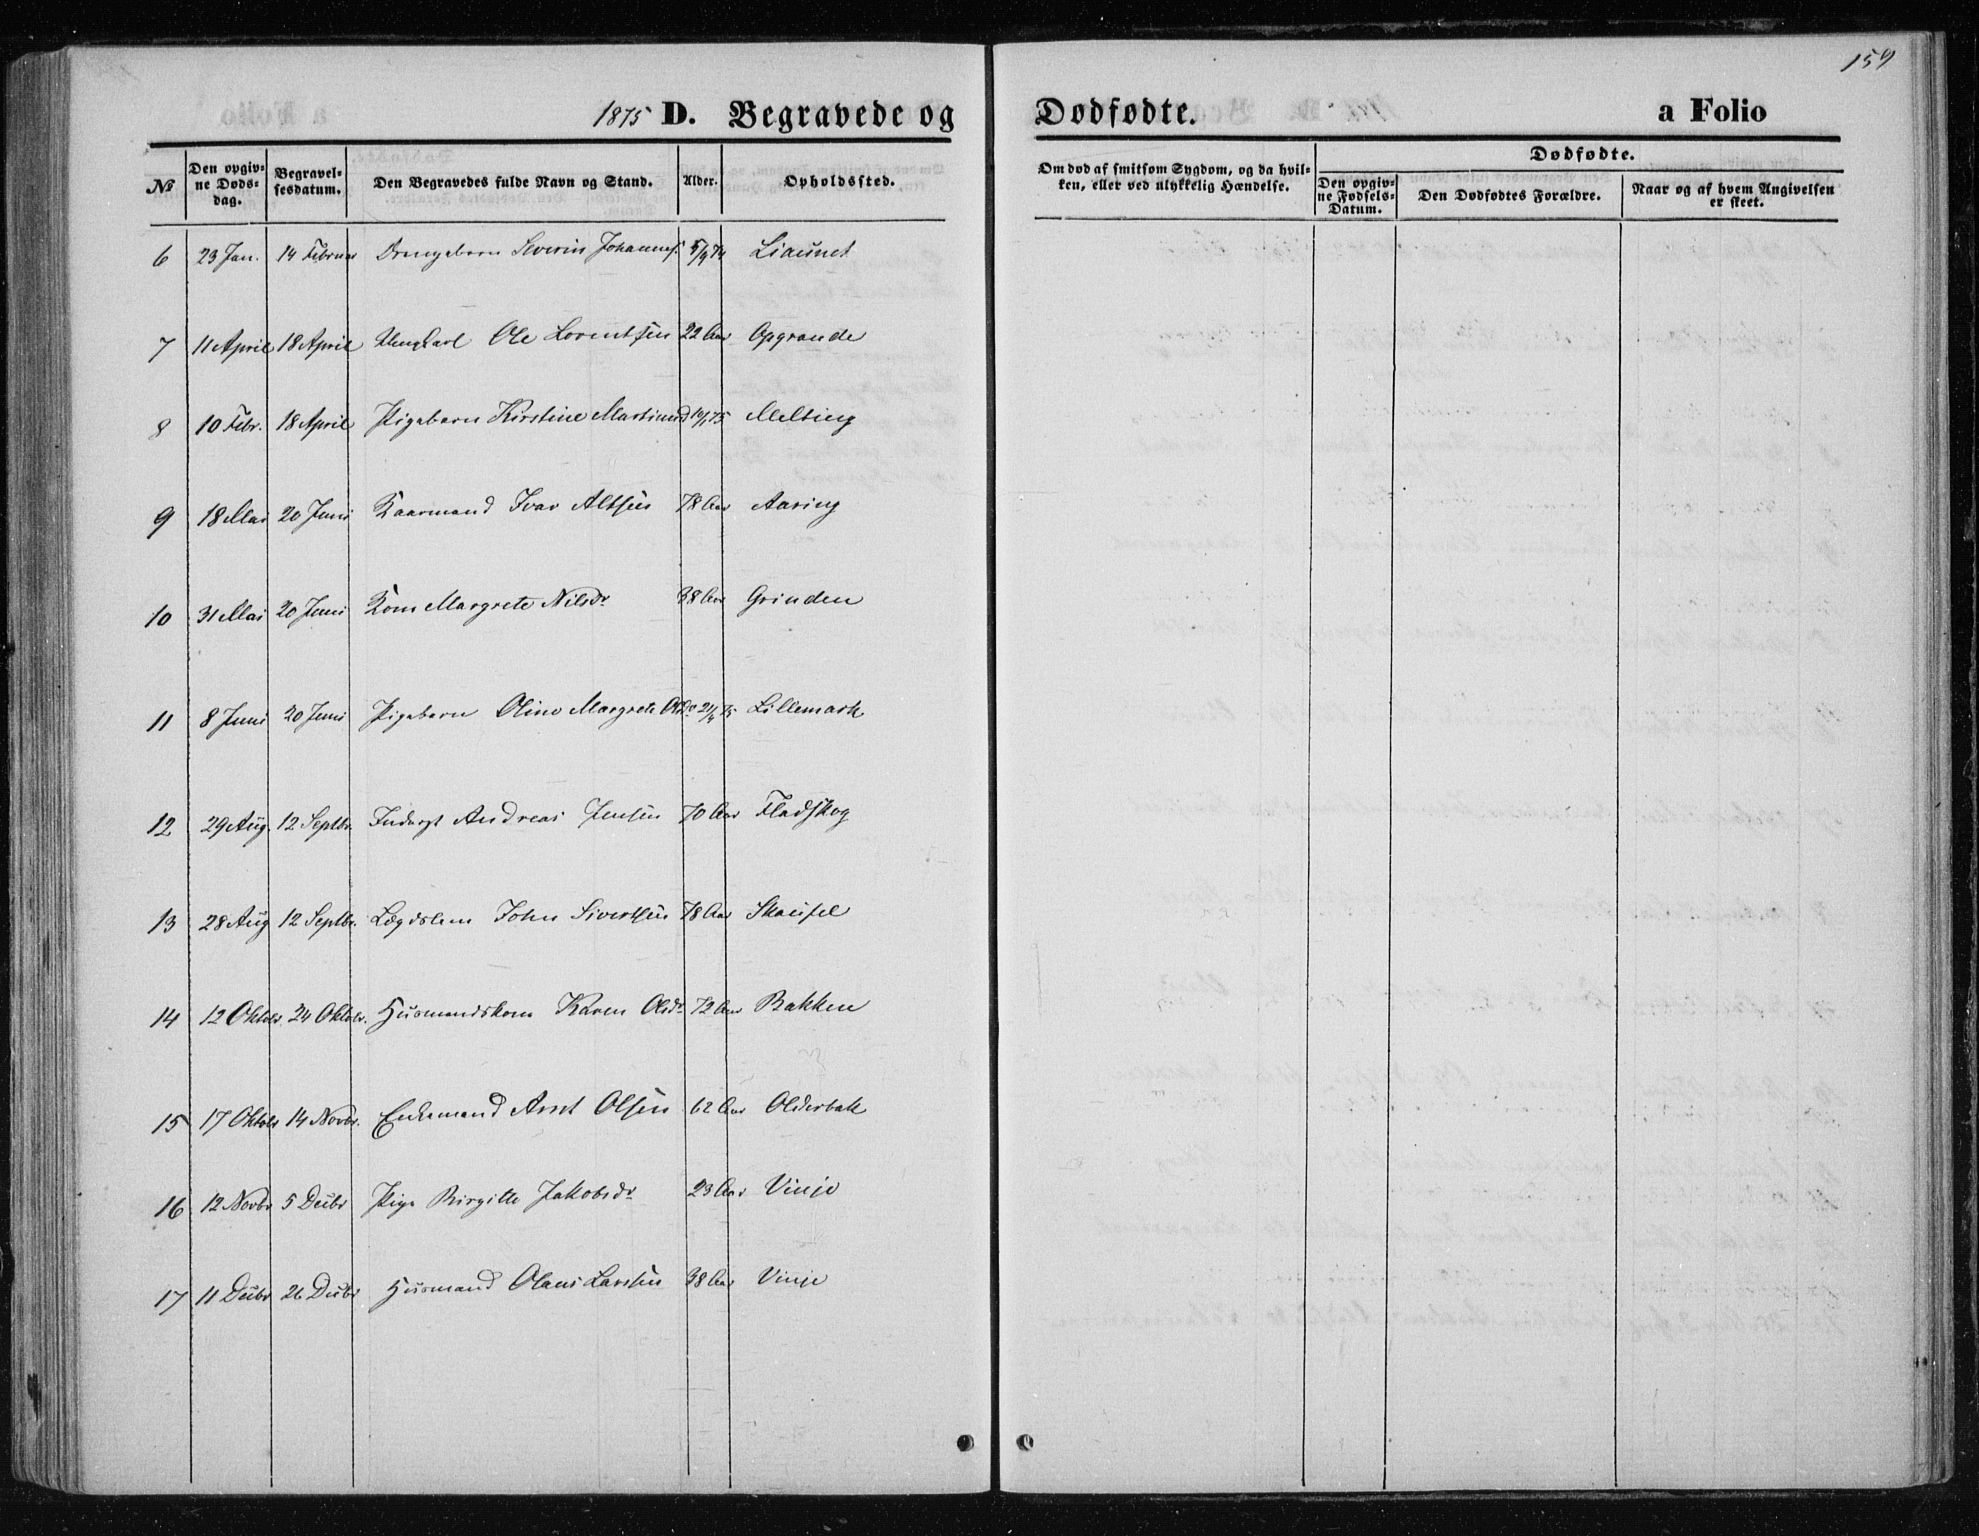 159
1875 D. Begravede og Dødfødte. a Folio
No
Den opgiv-
ne Døds-
dag.
Begravel-
sesdatum.
Den Begravedes fulde Navn og Stand.
Alder.
Opholdssted.
Om død af smitsom Sygdom, og da hvil-
ken, eller ved ulykkelig Hændelse.
Dødfødte.
Den opgiv-
ne Fødsels-
Datum.
Den Dødfødtes Forældre.
Naar og af hvem Angivelsen
er skeet.
6 23 Jan. 14 Februar Drengebarn Severin Johannes. 5/9 74 Liaunet
7 11 April 18 April Ungkarl Ole Lorentsen 22 Aar Opgrande
8 10 Febr. 18 April Pigebarn Kirstine Martinusd 10/1 75 Melting
9 18 Mai 20 Juni Kaarmand Ivar Altsen 78 Aar Aaring
10 31 Mai 20 Juni Kone Margrete Nilsdr 38 Aar Grinden
11 8 Juni 20 Juni Pigebarn Oline Margrete 21/4 75 Lillemark
12 29 Aug. 12 Septbr. Inderst Andreas Jensen 70 Aar Fladskog
13 28 Aug 12 Septbr. Lægdslem John Sivertsen 78 Aar Skaufel
14 12 Oktobr. 24 Oktobr. Husmandskone Karen Olsdr 72 Aar Bakken
15 17 Oktobr 14 Novbr. Enkemand Arnt Olsen 62 Aar Olderbak
16 12 Novbr 5 Decbr Pige Birgitte Jakobsdr 23 Aar Vinje
17 11 Decbr 26 Decbr Husmand Olaus Larsen 38 Aar Vinje